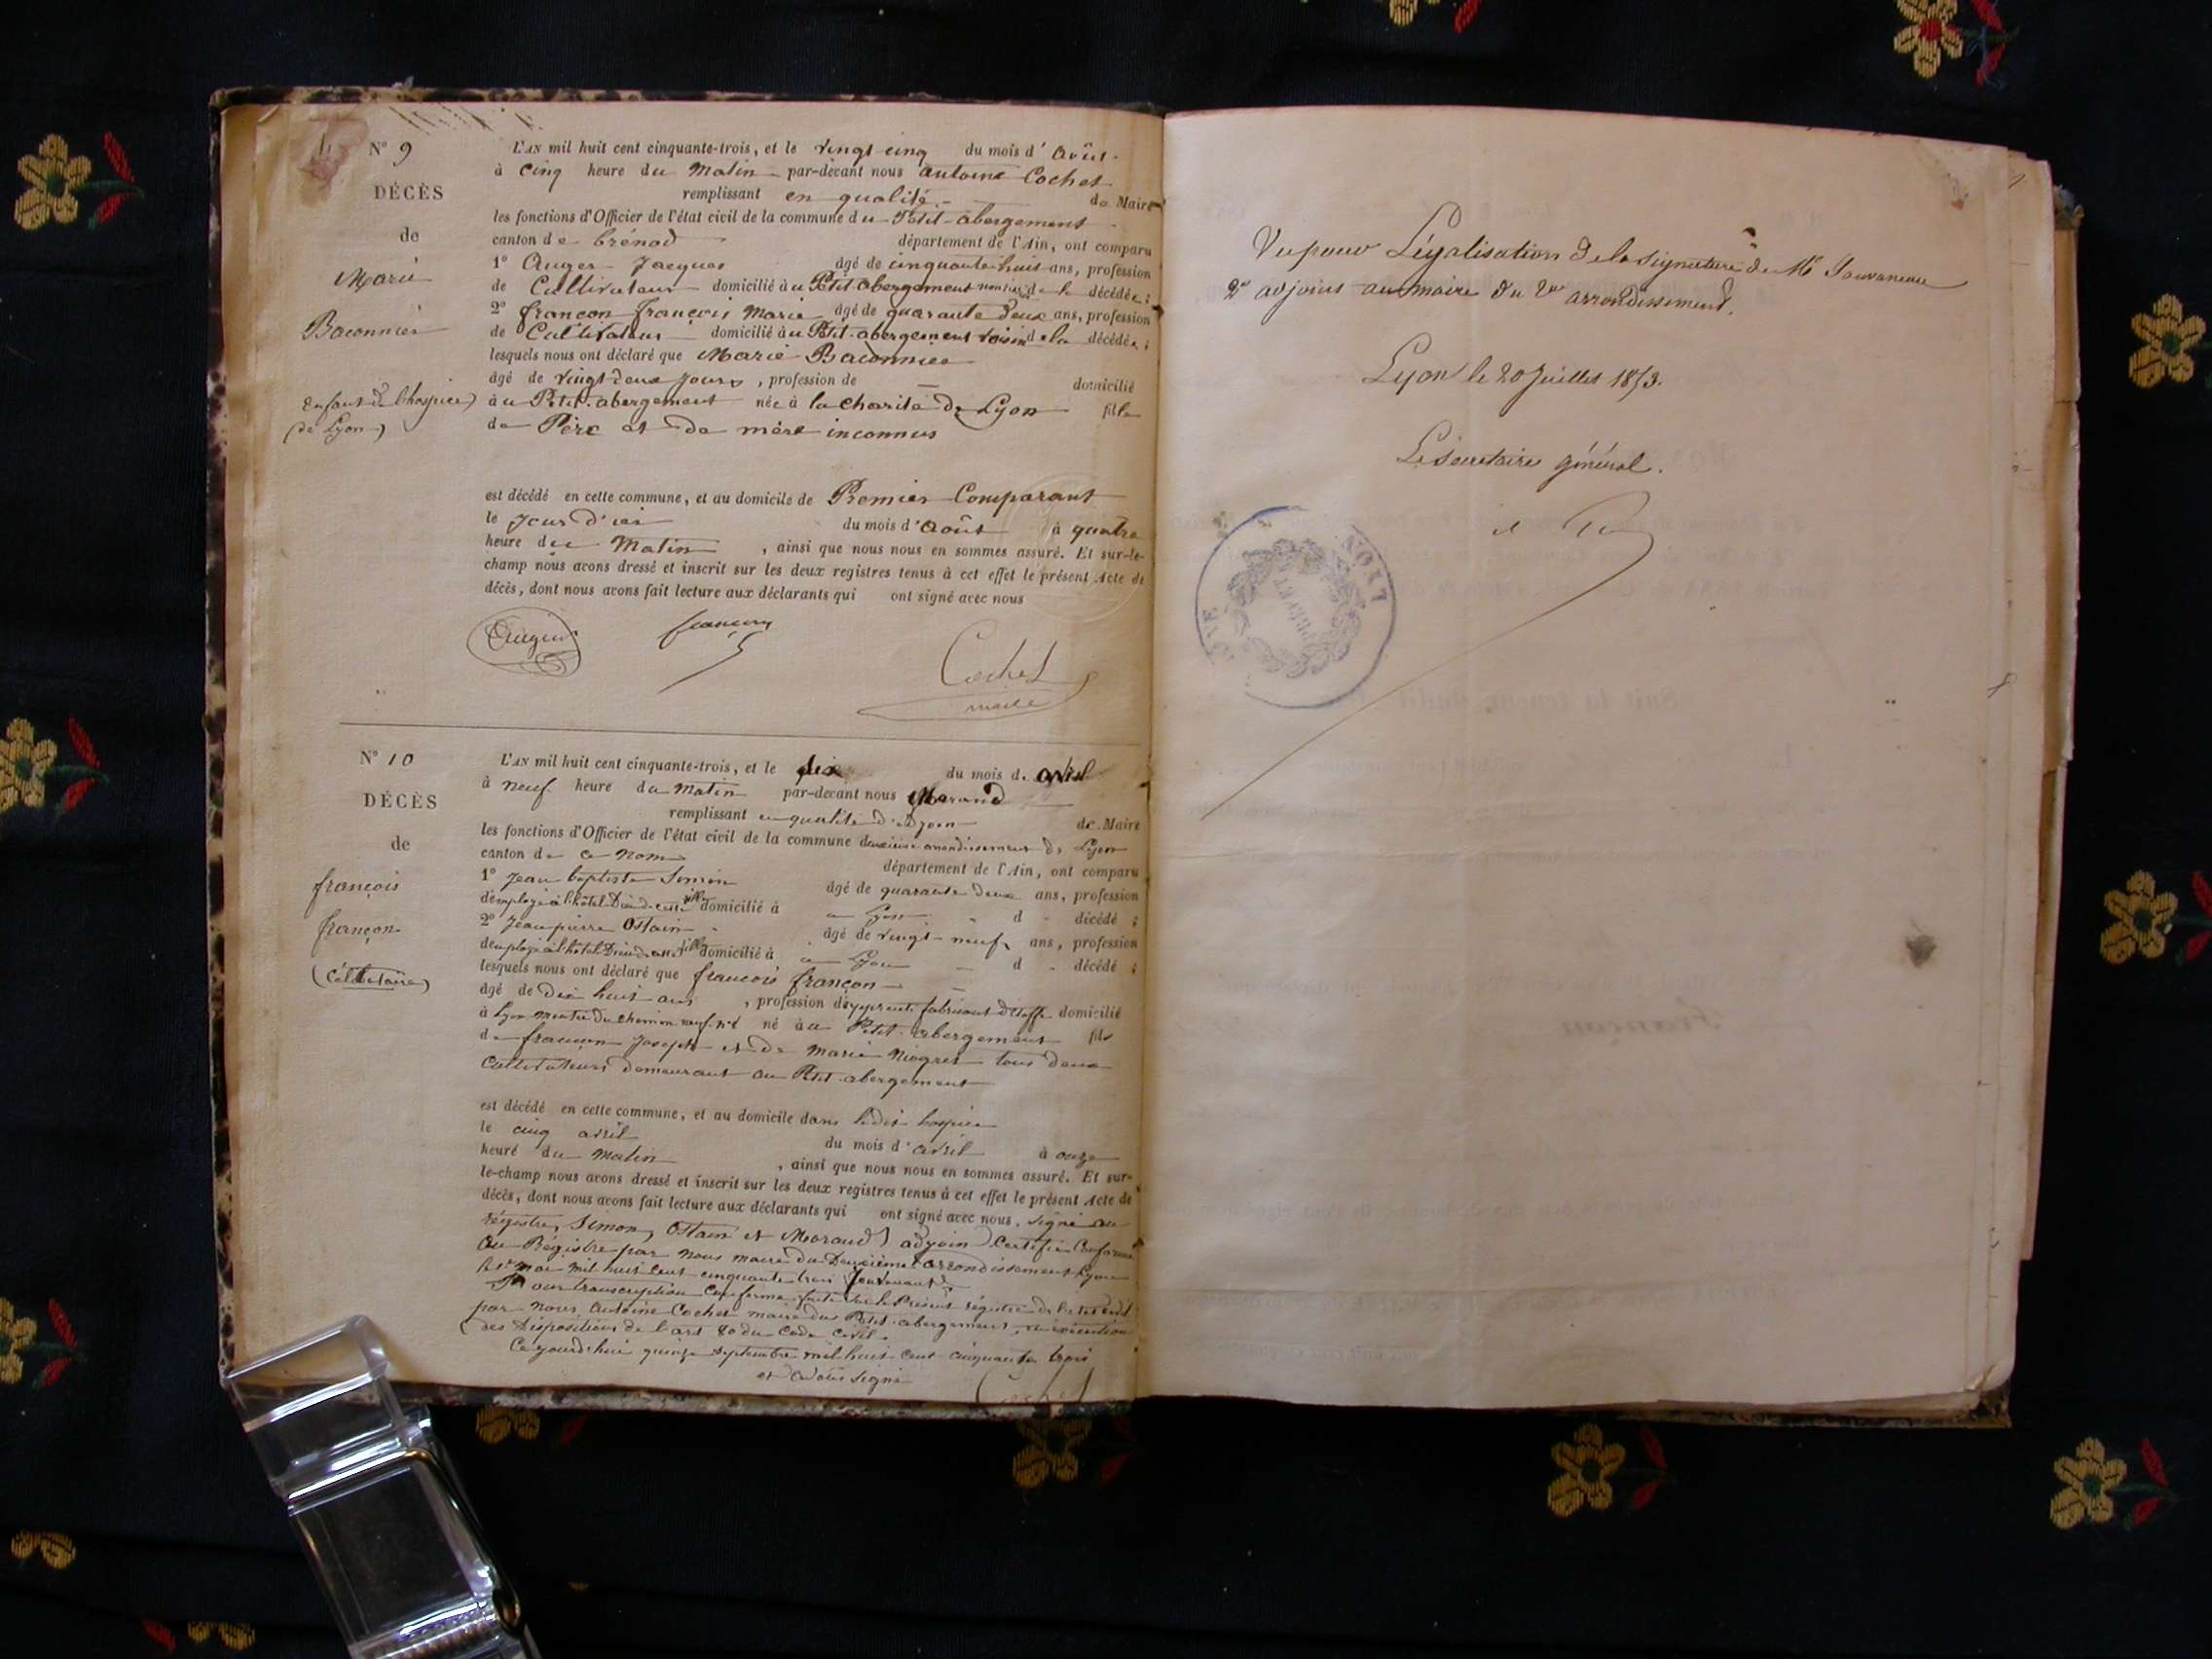 N° 9
DÉCÈS
de
Marie
Baconnier
enfant de l'hospice
(de Lyon)
L'AN mil huit cent cinquante-trois, et le vingt-cinq du mois d'Août
à cinq heure du Matin par-devant nous antoine Cochet
remplissant en qualité de Maire
les fonctions d'Officier de l'état civil de la commune du Petit-abergement
canton de brénod département de l'Ain, ont comparu
1° Auger Jacques âgé de cinquante huit ans, profession
de Cultivateur domicilié au Petit abergement de la décédée;
2° françon françois Marie âgé de quarante deux ans, profession
de Cultivateur domicilié au Petit-abergement voisin de la décédée;
lesquels nous ont déclaré que Marie Baconnier
âgé de vingt-deux jours, profession de — domicilié
à u Petit-abergement née à la Charité de Lyon fille
de Père et de mère inconnus
est décédé en cette commune, et au domicile de Premier Comparant
le Jour d'ier du mois d'Août à quatre
heure du Matin, ainsi que nous nous en sommes assuré. Et sur-le-
champ nous avons dressé et inscrit sur les deux registres tenus à cet effet le présent Acte de
décès, dont nous avons fait lecture aux déclarants qui ont signé avec nous
françon
Cochet
maire
N° 10
DÉCÈS
de
françois
françon
(Célibataire)
L'AN mil huit cent cinquante-trois, et le dix du mois d. avril
à neuf heure du matin par-devant nous Morand
remplissant en qualité d'adjoin de Maire
les fonctions d'Officier de l'état civil de la commune deuxième arrondissement de Lyon
canton de ce nom département de l'Ain, ont comparu
1° Jean baptiste Simon âgé de quarante deux ans, profession
d'employé à l'hôtel Dieu de cette ville domicilié à à Lyon d - décédé;
2° Jean pierre Ostain âgé de vingt-neuf ans, profession
d'employé à l'hôtel Dieu de cette ville domicilié à à Lyon d - décédé;
lesquels nous ont déclaré que françois françon
âgé de dix huit ans, profession d'apprenti fabricant d'étoffe domicilié
à Lyon montée du chemin neuf né à u Petit abergement fils
de françon Joseph et de Marie Niogret tous deux
cultivateurs demeurant au Petit abergement
est décédé en cette commune, et au domicile dans ledit hospice
le cinq avril du mois d'avril à onze
heure du matin, ainsi que nous nous en sommes assuré. Et sur-
le-champ nous avons dressé et inscrit sur les deux registres tenus à cet effet le présent Acte de
décès, dont nous avons fait lecture aux déclarants qui ont signé avec nous. Signé au
régistre, Simon, Ostain et Morand adjoin Certifié Conforme
au Régistre par nous maire du Deuxième arrondissement Lyon
mai mil huit cent cinquante trois
Pour transcription conforme faite sur le Présent régistre
par nous, antoine Cochet maire du Petit-abergement, en exécution
des Dispositions de l'art 80 du Code civil.
Ce jourd'hui quinze septembre mil huit cent cinquante trois
et avons signé
Cochet
Vu pour Légalisation de la signature de Mr
2e adjoint au maire du 2e arrondissement.
Lyon le 20 Juillet 1853.
Le Secrétaire général.